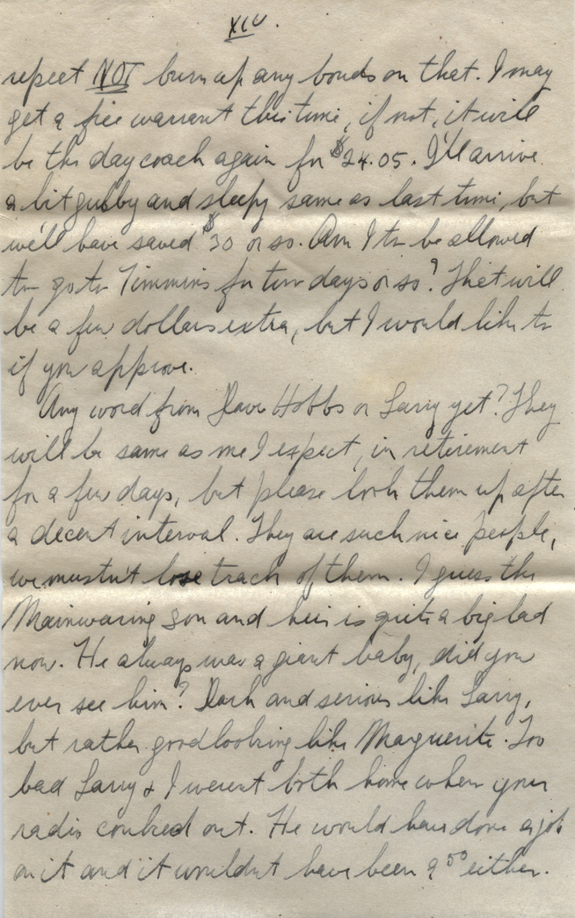 XIV.
repeat NOT burn up any bonds on that. I may
get a free warrant this time, if not, it will
be the day coach again for $24.05. I'll arrive
a bit grubby and sleepy same as last time, but
we'll have saved $30 or so. Am I to be allowed
to go to Timmins for two days or so? That will
be a few dollars extra, but I would like to
if you approve.
Any word from Dave Hobbs or Larry yet? They
will be same as me I expect, in retirement
for a few days, but please look them up after
a decent interval. They are such nice people,
we mustn't lose track of them. I guess the
Mainwaring son and heir is quite a big lad
now. He always was a giant baby, did you
ever see him? Dark and serious like Larry,
but rather goodlooking like Marguerite. Too
bad Larry & I weren't both home when your
radio conked out. He would have done a job
on it and it wouldn't have been 9 50 either.